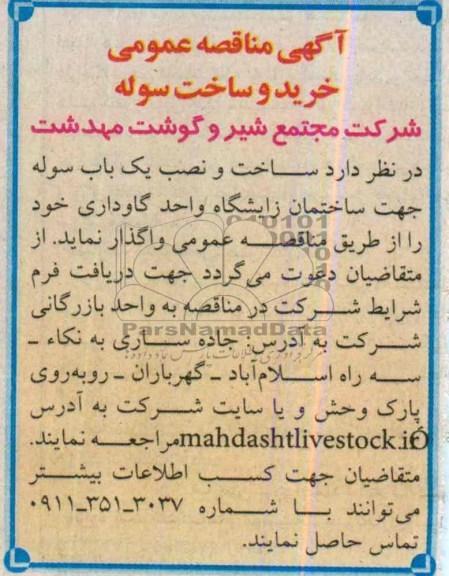 آگهی مناقصه عمومی
خرید و ساخت سوله
شرکت مجتمع شیر و گوشت مهدشت
در نظر دارد ساخت و نصب یک باب سوله
جهت ساختمان زایشگاه واحد گاوداری خود
را از طریق مناقصه عمومی واگذار نماید. از
متقاضیان دعوت می‌گردد جهت دریافت فرم
شرایط شرکت در مناقصه به واحد بازرگانی
ParsNamadData
شرکت به آدرس: جاده ساری به نکاء ـ
سه راه اسلام‌آباد ـ گهرباران ـ روبه‌روی
پارک وحش و یا سایت شرکت به آدرس
mahdashtlivestock.ir مراجعه نمایند.
متقاضیان جهت کسب اطلاعات بیشتر
می‌توانند با شماره ۳۰۳۷ـ۳۵۱ـ۰۹۱۱
تماس حاصل نمایند.